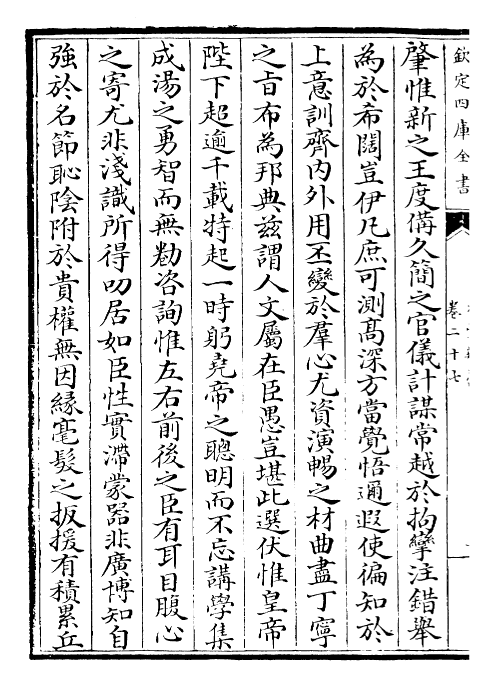 欽定四庫全書
卷二十七
肇惟新之王度備久簡之官儀計謀常越於拘攣注錯舉
為於希闊豈伊凡庶可測髙深方當覺悟邇遐使徧知於
上意訓齊内外用丕變於羣心尤資演暢之材曲盡丁寧
之旨布為邦典兹謂人文屬在臣愚豈堪此選伏惟皇帝
陛下超逾千載特起一時躬堯帝之聰明而不忘講學集
成湯之勇智而無勌咨詢惟左右前後之臣有耳目腹心
之寄尤非淺識所得叨居如臣性實滯蒙器非廣博知自
強於名節恥陰附於貴權無因緣毫髮之扳援有積累丘